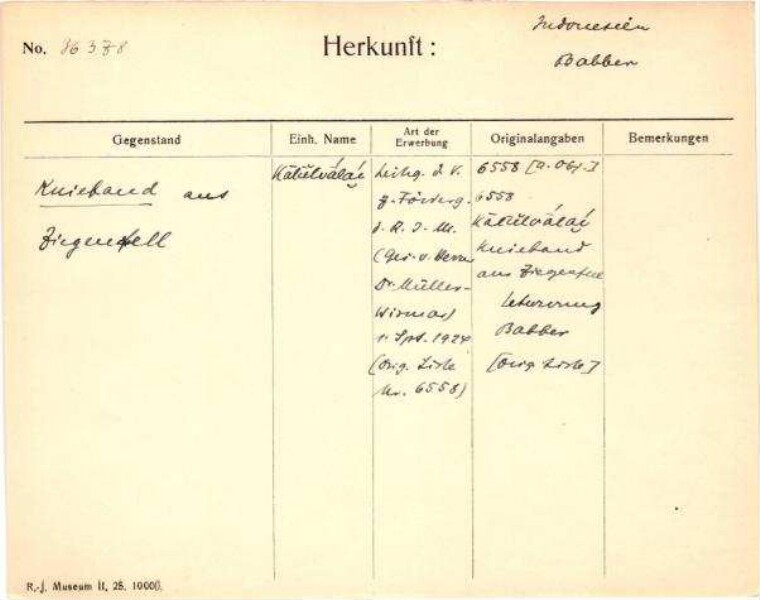 No. 36378
Herkunft:
Indonesien
Babber
Gegenstand
Einh. Name
Art der Erwerbung
Originalangaben
Bemerkungen
Knieband aus
Ziegenfell
Leihg. d. V.
z. Förderg.
d. R. J. M.
(Ges. v. Herrn
Dr. Müller-
Wismar)
1. Spt. 1927
(Orig. Liste
Nr. 6558)
6558 [a. Obj.]
6558
Knieband
aus Ziegenfell
Babber
[Orig. Liste]
R.-J. Museum II, 25. 10000.